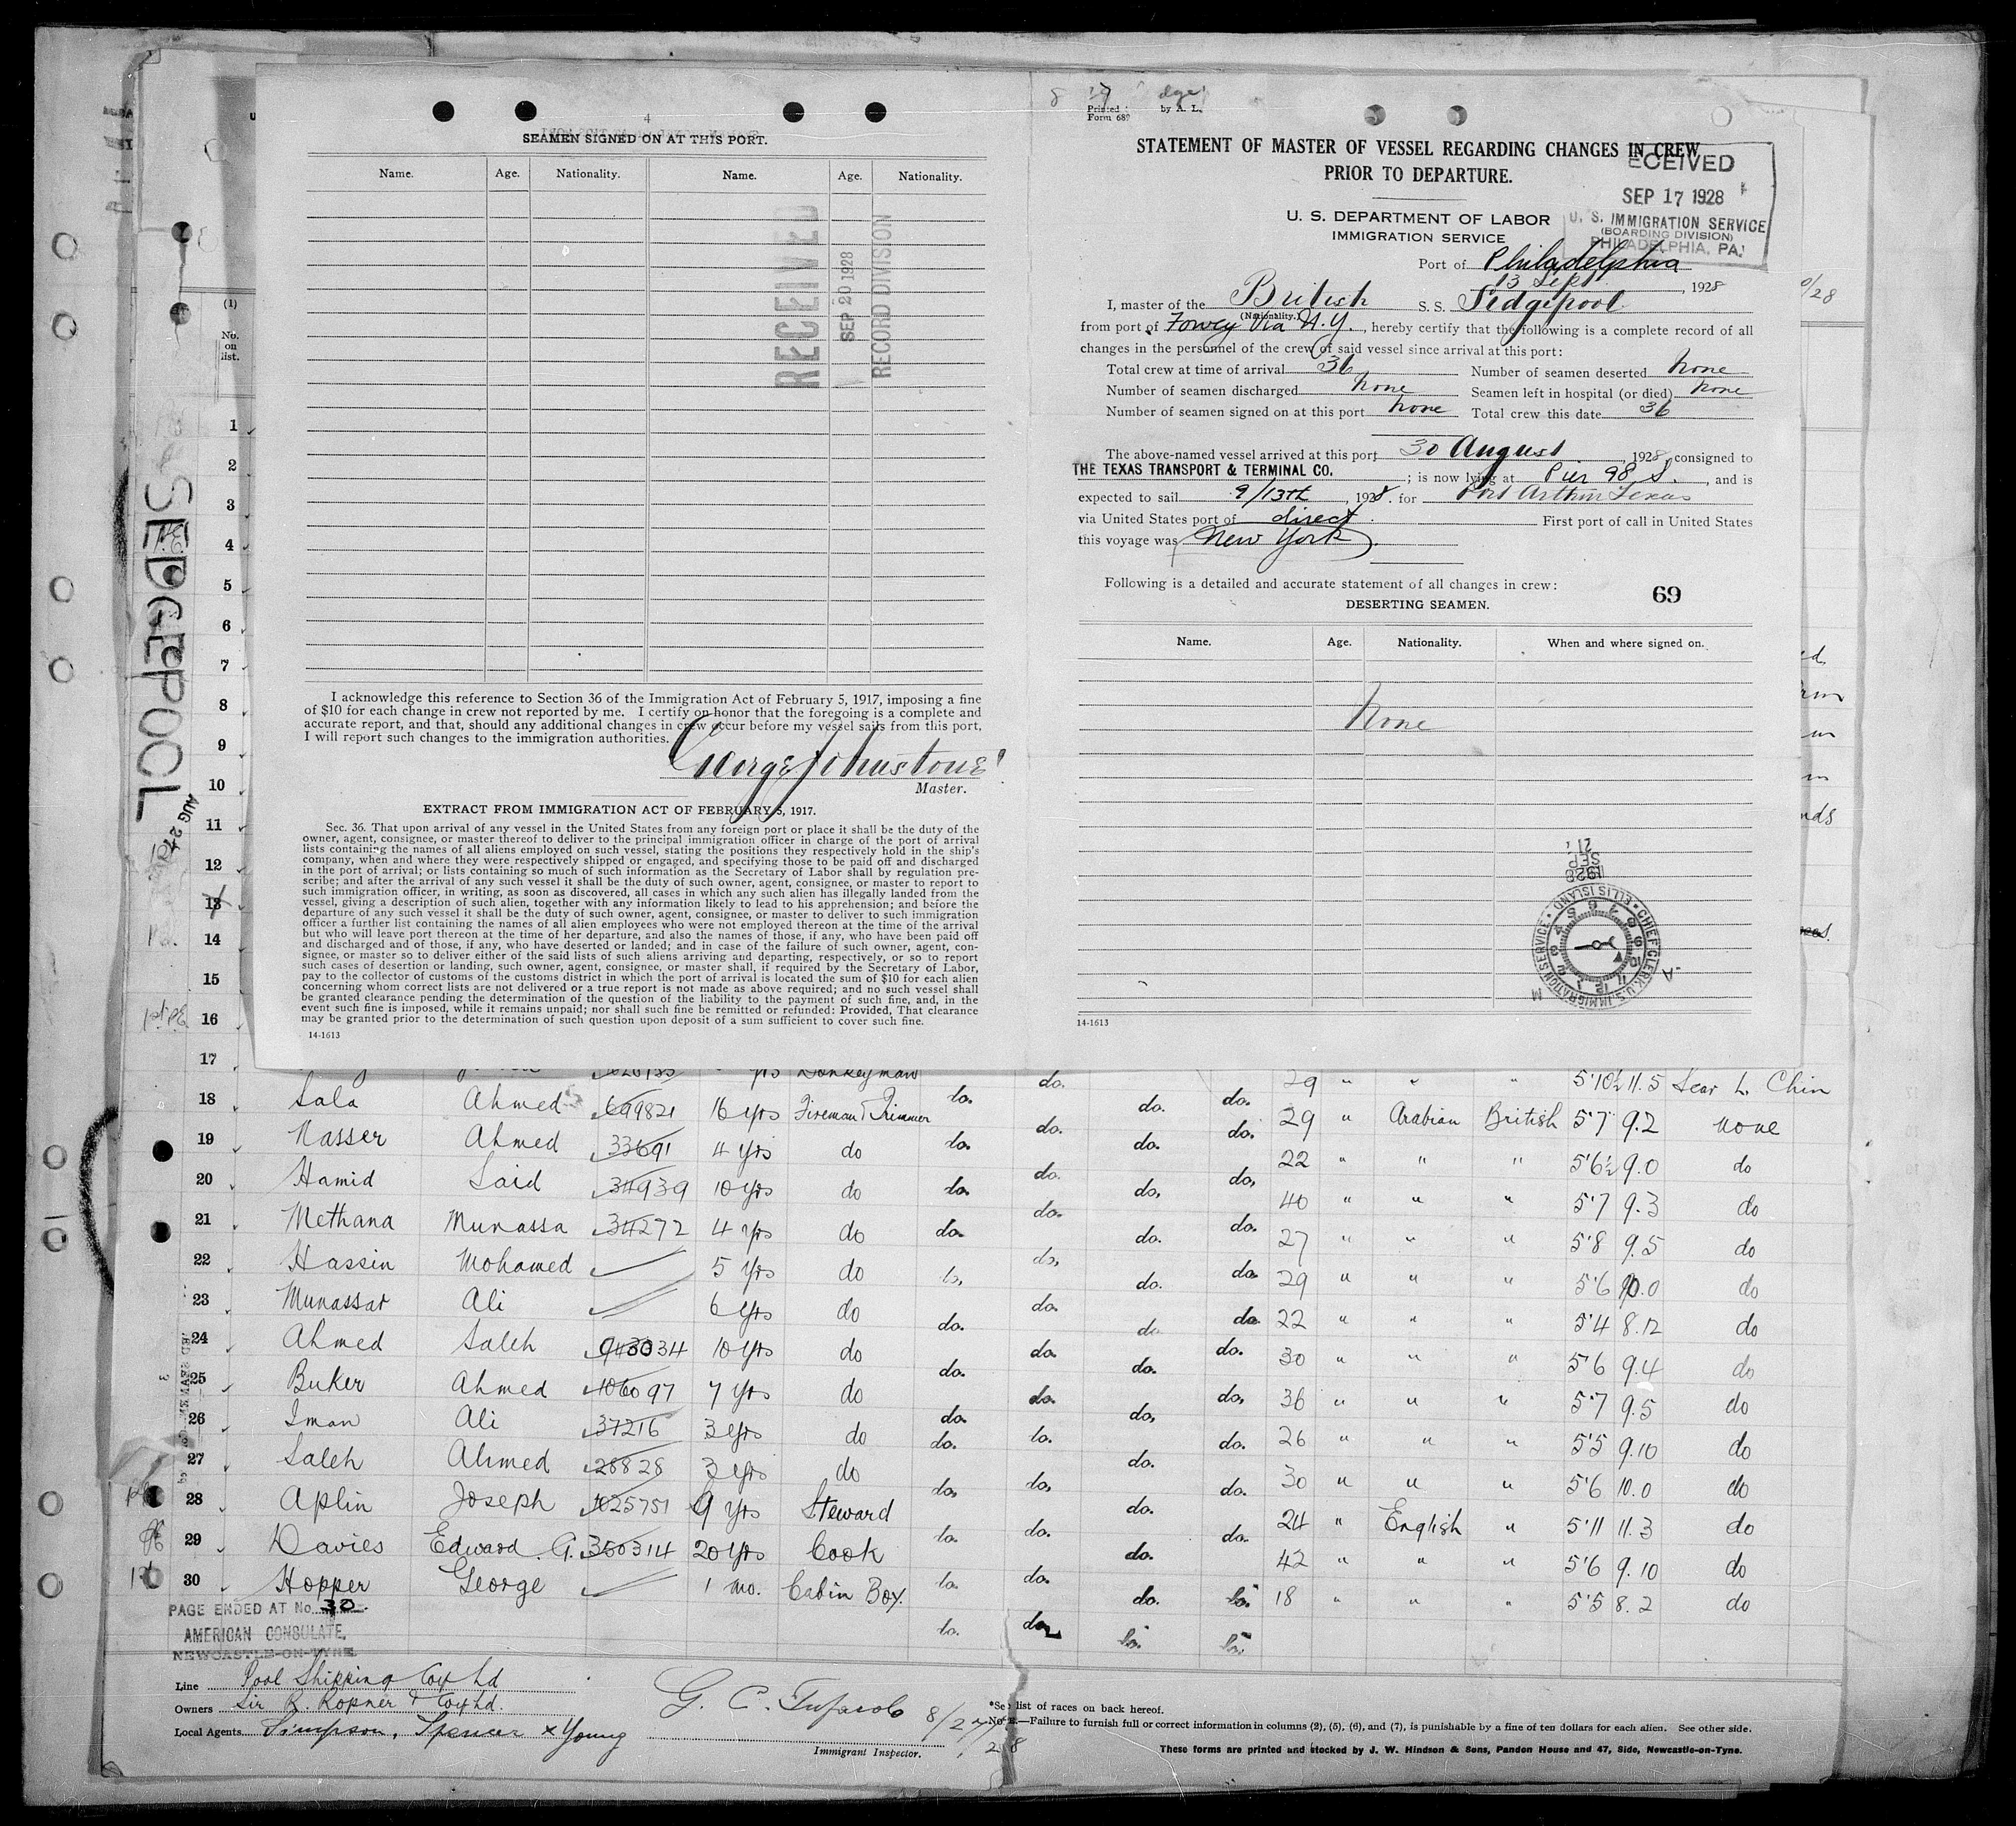 4
SEAMEN SIGNED ON AT THIS PORT.
Name. Age. Nationality. Name. Age. Nationality.
RECEIVED
SEP 20 1928
RECORD DIVISION
I acknowledge this reference to Section 36 of the Immigration Act of February 5, 1917, imposing a fine
of $10 for each change in crew not reported by me. I certify on honor that the foregoing is a complete and
accurate report, and that, should any additional changes in crew occur before my vessel sails from this port,
I will report such changes to the immigration authorities.
George Johnstone
Master.
EXTRACT FROM IMMIGRATION ACT OF FEBRUARY 5, 1917.
Sec. 36. That upon arrival of any vessel in the United States from any foreign port or place it shall be the duty of the
owner, agent, consignee, or master thereof to deliver to the principal immigration officer in charge of the port of arrival
lists containing the names of all aliens employed on such vessel, stating the positions they respectively hold in the ship's
company, when and where they were respectively shipped or engaged, and specifying those to be paid off and discharged
in the port of arrival; or lists containing so much of such information as the Secretary of Labor shall by regulation pre-
scribe; and after the arrival of any such vessel it shall be the duty of such owner, agent, consignee, or master to report to
such immigration officer, in writing, as soon as discovered, all cases in which any such alien has illegally landed from the
vessel, giving a description of such alien, together with any information likely to lead to his apprehension; and before the
departure of any such vessel it shall be the duty of such owner, agent, consignee, or master to deliver to such immigration
officer a further list containing the names of all alien employees who were not employed thereon at the time of the arrival
but who will leave port thereon at the time of her departure, and also the names of those, if any, who have been paid off
and discharged and of those, if any, who have deserted or landed; and in case of the failure of such owner, agent, con-
signee, or master so to deliver either of the said lists of such aliens arriving and departing, respectively, or so to report
such cases of desertion or landing, such owner, agent, consignee, or master shall, if required by the Secretary of Labor,
pay to the collector of customs of the customs district in which the port of arrival is located the sum of $10 for each alien
concerning whom correct lists are not delivered or a true report is not made as above required; and no such vessel shall
be granted clearance pending the determination of the question of the liability to the payment of such fine, and, in the
event such fine is imposed, while it remains unpaid; nor shall such fine be remitted or refunded: Provided, That clearance
may be granted prior to the determination of such question upon deposit of a sum sufficient to cover such fine.
14-1613
Printed by A. L.
Form 689
STATEMENT OF MASTER OF VESSEL REGARDING CHANGES IN CREW
PRIOR TO DEPARTURE.
U. S. DEPARTMENT OF LABOR
IMMIGRATION SERVICE
ECEIVED
SEP 17 1928
U. S. IMMIGRATION SERVICE
(BOARDING DIVISION)
PHILADELPHIA, PA.
Port of Philadelphia
13 Sept, 1928
I, master of the British S. S. Sedgepool
(Nationality.)
from port of Fowey Via N.Y., hereby certify that the following is a complete record of all
changes in the personnel of the crew of said vessel since arrival at this port:
Total crew at time of arrival 36 Number of seamen deserted None
Number of seamen discharged None Seamen left in hospital (or died) None
Number of seamen signed on at this port None Total crew this date 36
The above-named vessel arrived at this port 30 August, 1928, consigned to
THE TEXAS TRANSPORT & TERMINAL CO.; is now lying at Pier 98 S., and is
expected to sail 9/13th, 1928. for Port Arthur Texas
via United States port of direct. First port of call in United States
this voyage was New York.
Following is a detailed and accurate statement of all changes in crew:
69
DESERTING SEAMEN.
Name. Age. Nationality. When and where signed on.
None
1928
SEP
21
CHIEF CLERK U.S. IMMIGRATION SERVICE • ELLIS ISLAND
14-1613
SEDGEPOOL
AUG 24
(1)
No.
on
list.
1
2
3
4
5
6
7
8
9
10
11
12
13
14
15
16
17 Donkeyman do. 29 " " " 5'10½ 11.5 Scar L. Chin
18 Sala Ahmed 699821 16 yrs Fireman & Trimmer do. do. do. do. 29 " Arabian British 5'7 9.2 None
19 Nasser Ahmed 33691 4 yrs do do. do. do. do. 22 " " " 5'6½ 9.0 do
20 Hamid Said 34939 10 yrs do do. do. do. do. 40 " " " 5'7 9.3 do
21 Methana Munassa 34272 4 yrs do do. do. do. do. 27 " " " 5'8 9.5 do
22 Hassin Mohamed 5 yrs do do. do. do. do. 29 " " " 5'6 10.0 do
23 Munassar Ali 6 yrs do do. do. do. do. 22 " " " 5'4 8.12 do
24 Ahmed Saleh 943034 10 yrs do do. do. do. do. 30 " " " 5'6 9.4 do
25 Buker Ahmed 106097 7 yrs do do. do. do. do. 36 " " " 5'7 9.5 do
26 Iman Ali 37216 3 yrs do do. do. do. do. 26 " " " 5'5 9.10 do
27 Saleh Ahmed 28828 3 yrs do do. do. do. do. 30 " " " 5'6 10.0 do
28 Aplin Joseph 1025751 9 yrs Steward do. do. do. do. 24 " English " 5'11 11.3 do
29 Davies Edward. G. 350314 20 yrs Cook do. do. do. do. 42 " " " 5'6 9.10 do
30 Hopper George 1 mo. Cabin Boy do. do. do. do. 18 " " " 5'5 8.2 do
PAGE ENDED AT No. 30.
AMERICAN CONSULATE,
NEWCASTLE-ON-TYNE
Line Pool Shipping Coy Ltd
Owners Sir R. Ropner & Coy Ltd.
Local Agents Simpson, Spencer & Young
8/27/28
Immigrant Inspector.
*See list of races on back hereof.
Note.—Failure to furnish full or correct information in columns (2), (5), (6), and (7), is punishable by a fine of ten dollars for each alien. See other side.
These forms are printed and stocked by J. W. Hindson & Sons, Pandon House and 47, Side, Newcastle-on-Tyne.